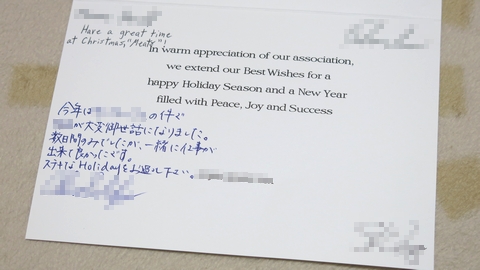 Have a great time
at Christmas, "Meats"!
In warm appreciation of our association,
we extend our Best Wishes for a
happy Holiday Season and a New Year
filled with Peace, Joy and Success
今年は の件で
が大変御世話になりました。
数日間のみでしたが、一緒に仕事が
出来て良かったです。
ステキなHolidayをお過し下さい。